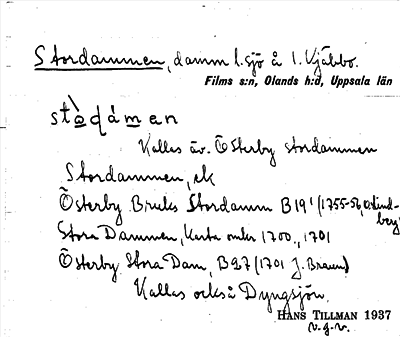 Stordammen, damm l. sjö å l. Vjäbbo.
Films s:n, Olands h:d, Uppsala län
stòdámen
Kallas äv. Österby stordammen
Stordammen, ek
Österby Bruks Stordamm B19¹ (1755-56, Lind-
berg)
Stora Dammen, Karta omkr 1700., 1701
Österby Stora Dam, B27 (1701 J. Braun)
Kallas också Dyngsjön.
HANS TILLMAN 1937